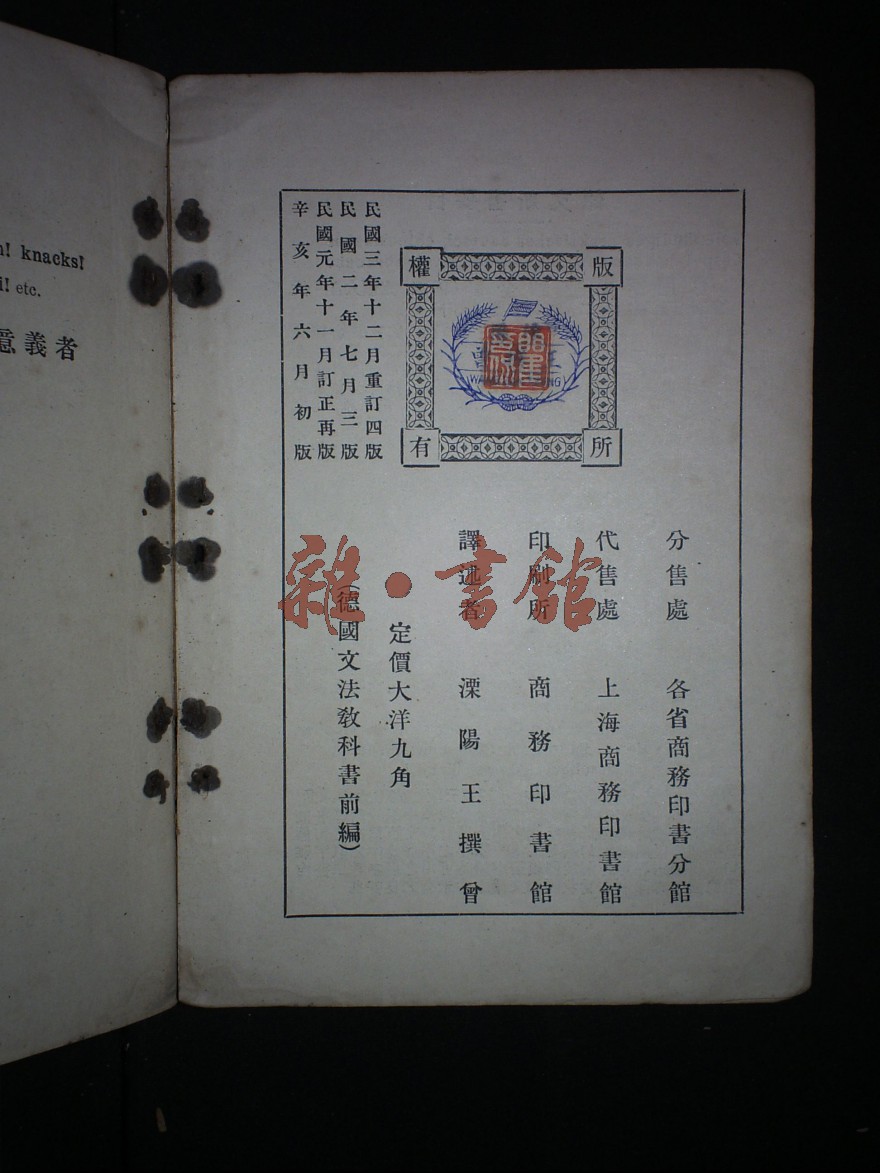 n! knacks!
i! etc.
意義者
版權所有
分售處 各省商務印書分館
代售處 上海商務印書館
印刷所 商務印書館
譯述者 溧陽王撰曾
定價大洋九角
(德國文法教科書前編)
民國三年十二月重訂四版
民國二年七月三版
民國元年十一月訂正再版
辛亥年六月初版
雜·書館